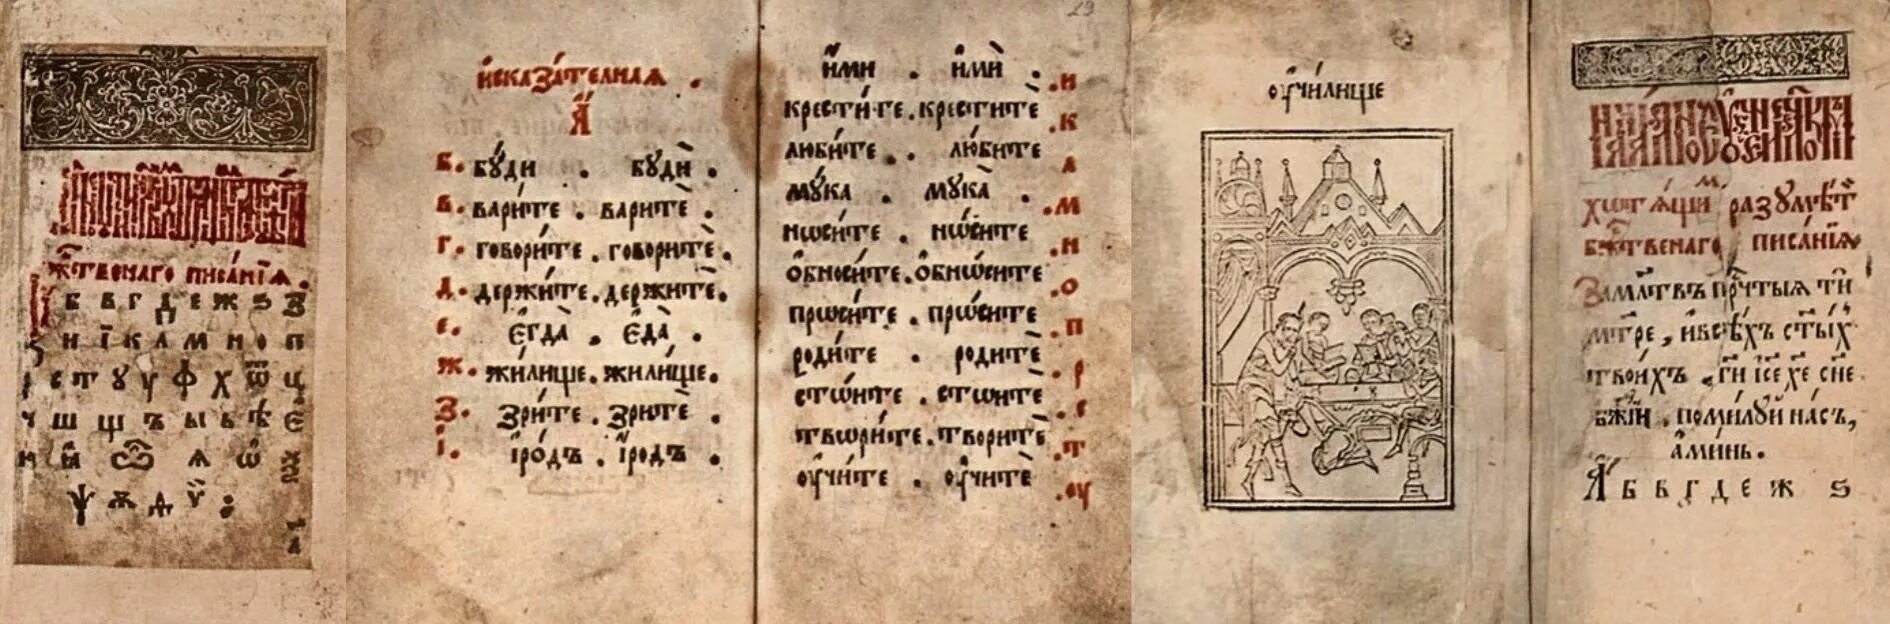 жⷭ҇твенаго писа́нїꙗ.
б в г д е ж ѕ з
и ї к л м н о п
р с т у ф х ѿ ц
ч ш щ ъ ы ь ѣ є
и҆сказа́телнаѧ .
А҆́
б. бу́ди . буди̂ .
в. вари́те . варите̂ .
г. говори́те . говорите̂ .
д. держи́те . держите̂ .
е. є҆гда̀ . є҆да̀ .
ж. жили́ще . жили́ще .
з. зри́те . зрите̂ .
і. і҆́родъ . і҆́родъ .
и҆́ми . и҆ми̂ . и
крести́те . крестите̂ .к
люби́те . . люби́те . л
му́ка . мука̀ . .м
нѡси́те . нѡ́сите .н
ѻ҆бноси́те . ѻ҆бнѡ́сите .о
прѡси́те . прѡ́сите .п
роди́те . родите̂ .р
стѡ́ите . стѡите̂ .с
твѡри́те . творите̂ .т
ᲂу҆чи́те . ᲂу҆чите̂ .ᲂу
ᲂу҆чи́лище
хѡтѧ́щи̇м разумѣ́т
бжⷭ҇твенаго писа́нїѧ
За мл҃твъ прⷭ҇чтыѧ ти̂
мт҃ре, и҆ всѣ́хъ ст҃ы́х
твои́хъ , гⷭ҇и і҆с҃е хе҃ сн҃е
бж҃їй , поми́луй на́съ,
а҆ми́нь .
А҆́ б в г д е ж ѕ